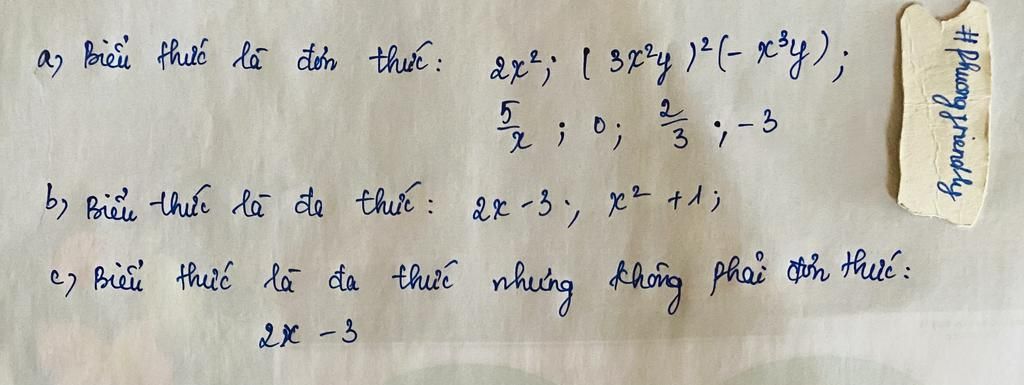 a, Biểu thức là đơn thức: 2x²; (3x²y)²(-x³y);
5/x; 0; 2/3; -3
b, Biểu thức là đa thức: 2x-3; x²+1;
c, Biểu thức là đa thức nhưng không phải đơn thức:
2x-3
#phuongfriendly